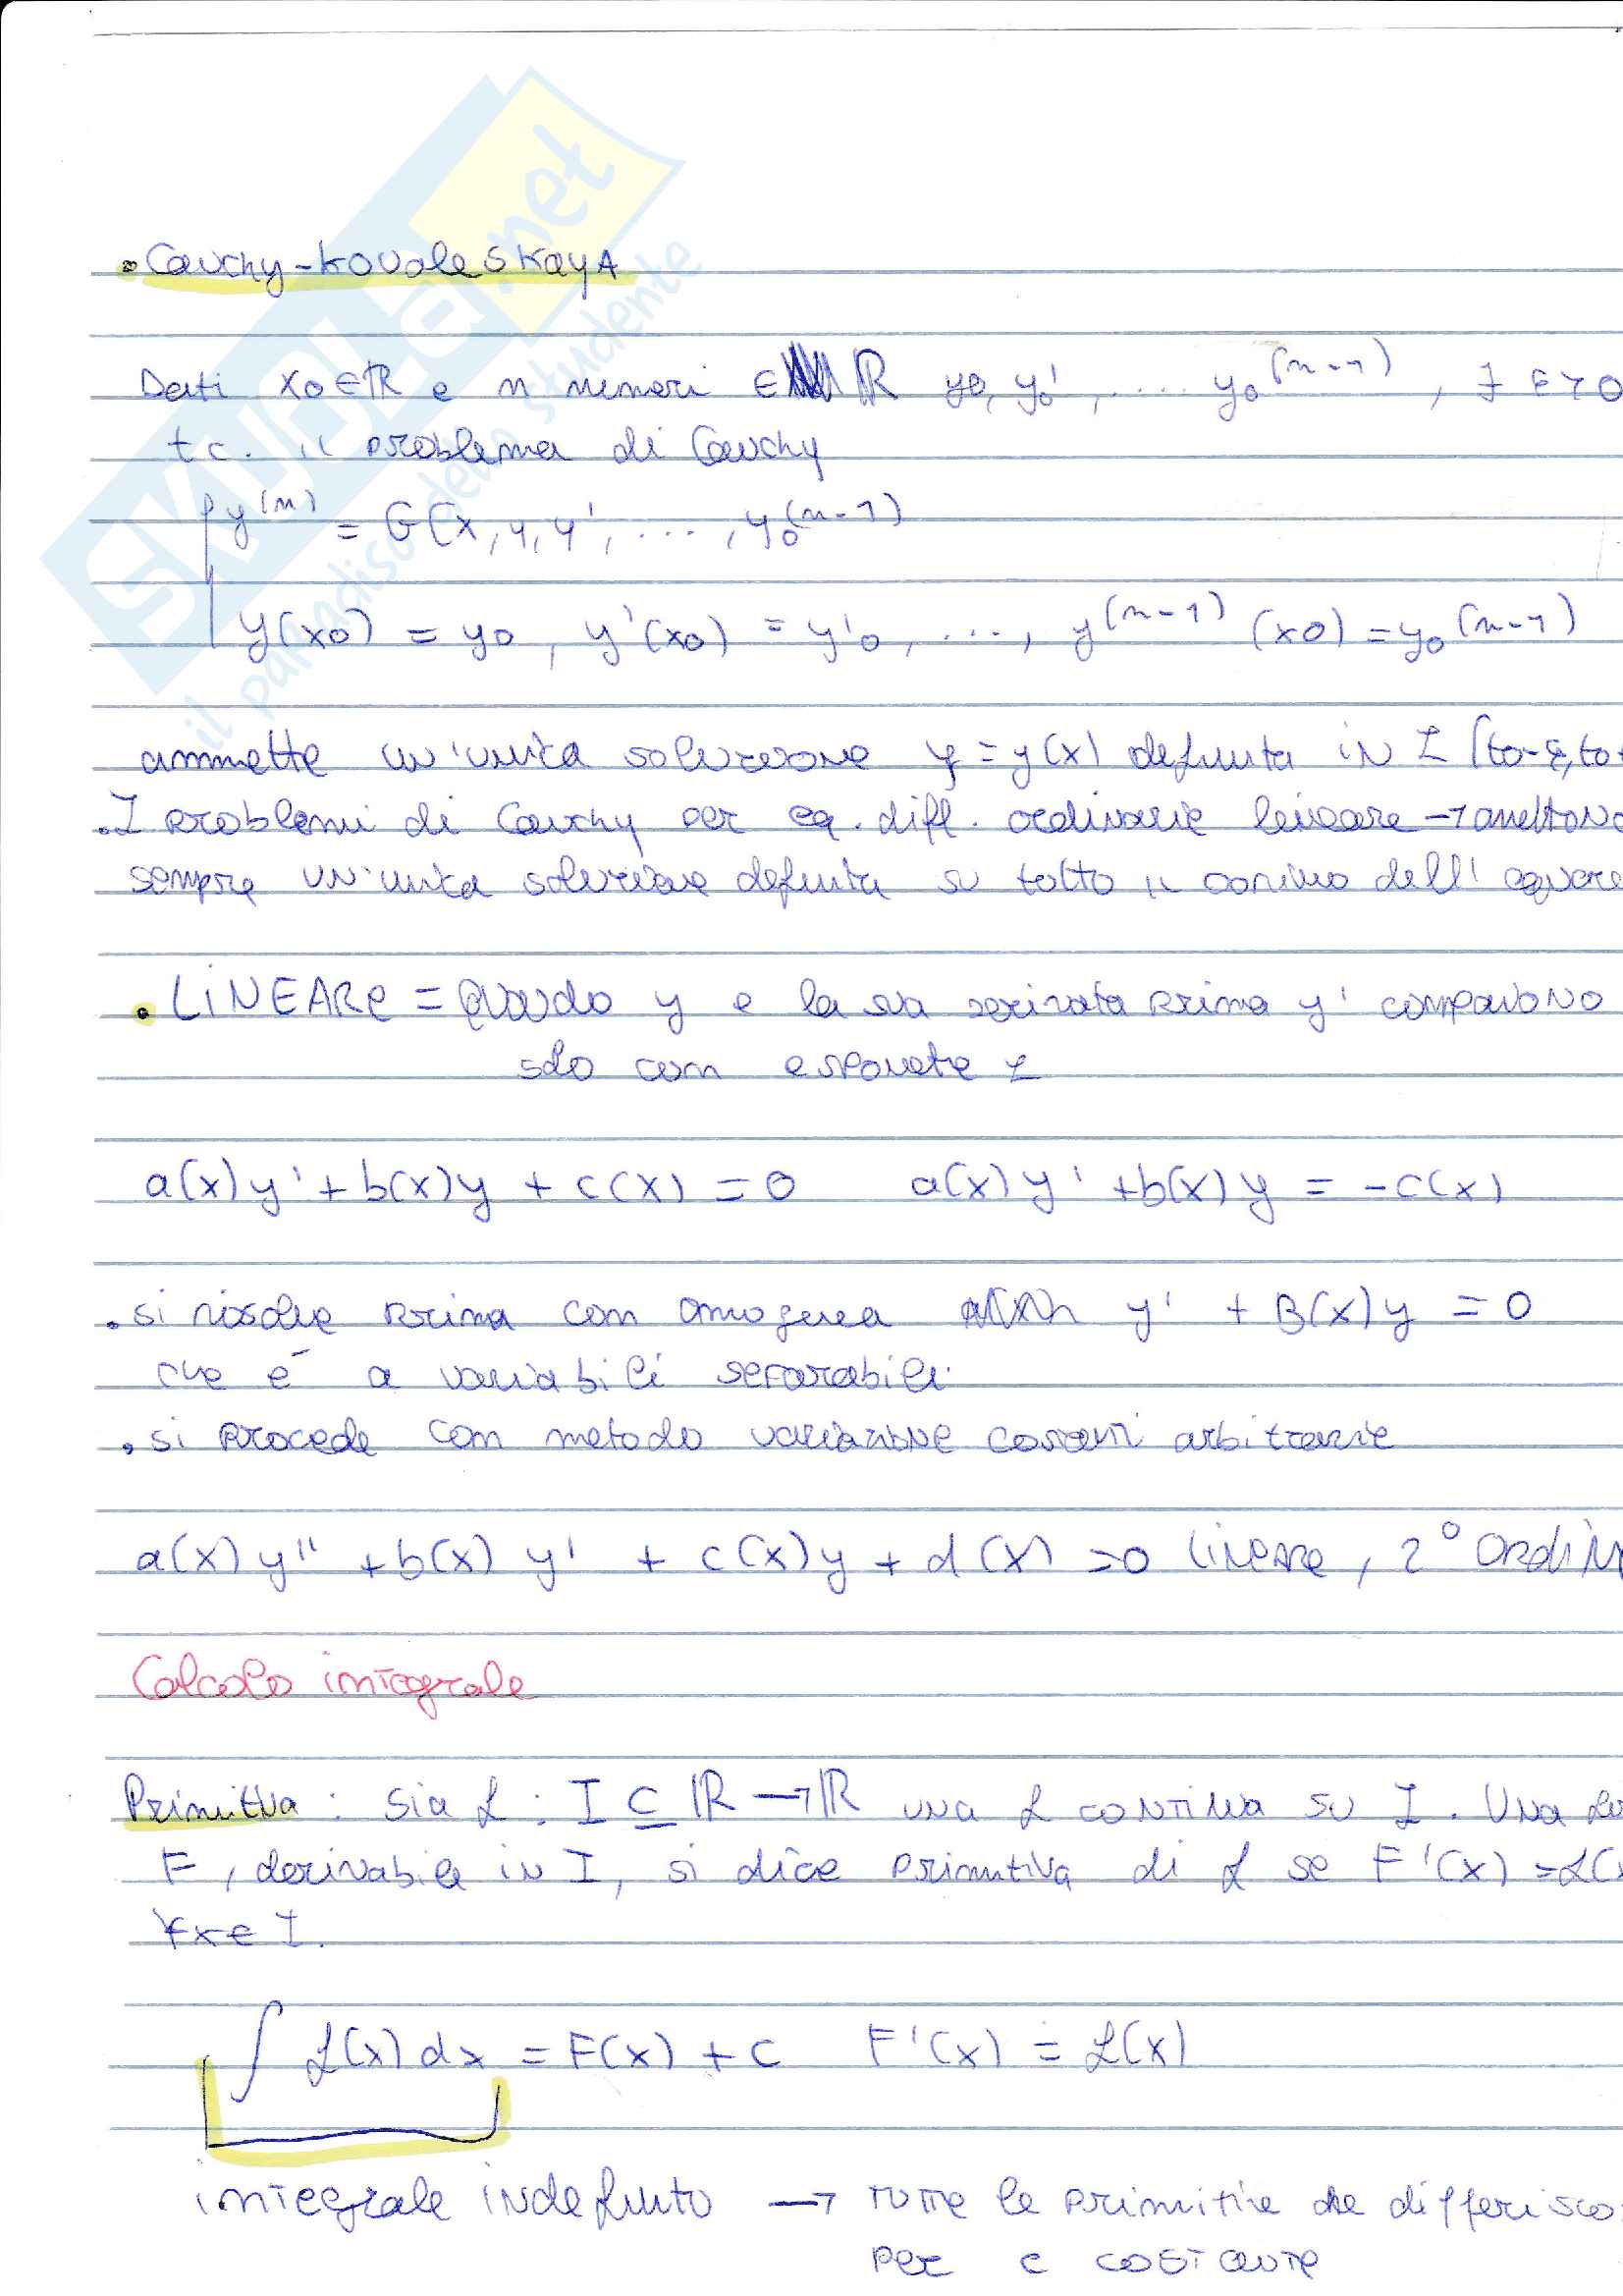 • Cauchy-KovaleskayA
Dati x0∈ℝ e n numeri ∈ ℝ y0, y0', .... y0^(n-1), ∃ ε>0
tc. il problema di Cauchy
{ y^(n) = G(x, y, y', ..., y0^(n-1)
y(x0) = y0, y'(x0) = y'0, ..., y^(n-1) (x0) = y0^(n-1)
ammette un'unica soluzione y = y(x) definita in I (to-ε, to+
. I problemi di Cauchy per eq. diff. ordinarie lineare → amettono
sempre un'unica soluzione definita su tutto il dell'
• LINEARE = Quando y e la sua derivata prima y' compaiono
solo com esponente 1
a(x)y' + b(x)y + c(x) = 0 a(x)y' + b(x)y = -c(x)
. si risolve prima com omogenea y' + B(x)y = 0
che è a variabili separabili.
. si procede com metodo variazione costanti arbitrarie
a(x)y'' + b(x)y' + c(x)y + d(x) =0 lineare, 2° Ordin
Calcolo integrale
Primitiva: Sia f: I ⊆ ℝ → ℝ una f continua su I. Una
F, derivabile in I, si dice primitiva di f se F'(x) = f(x
∀x∈I.
∫ f(x) dx = F(x) + c F'(x) = f(x)
integrale indefinito → tutte le primitive che differisco
per c costante
SKUOLA.net
il paradiso dello studente